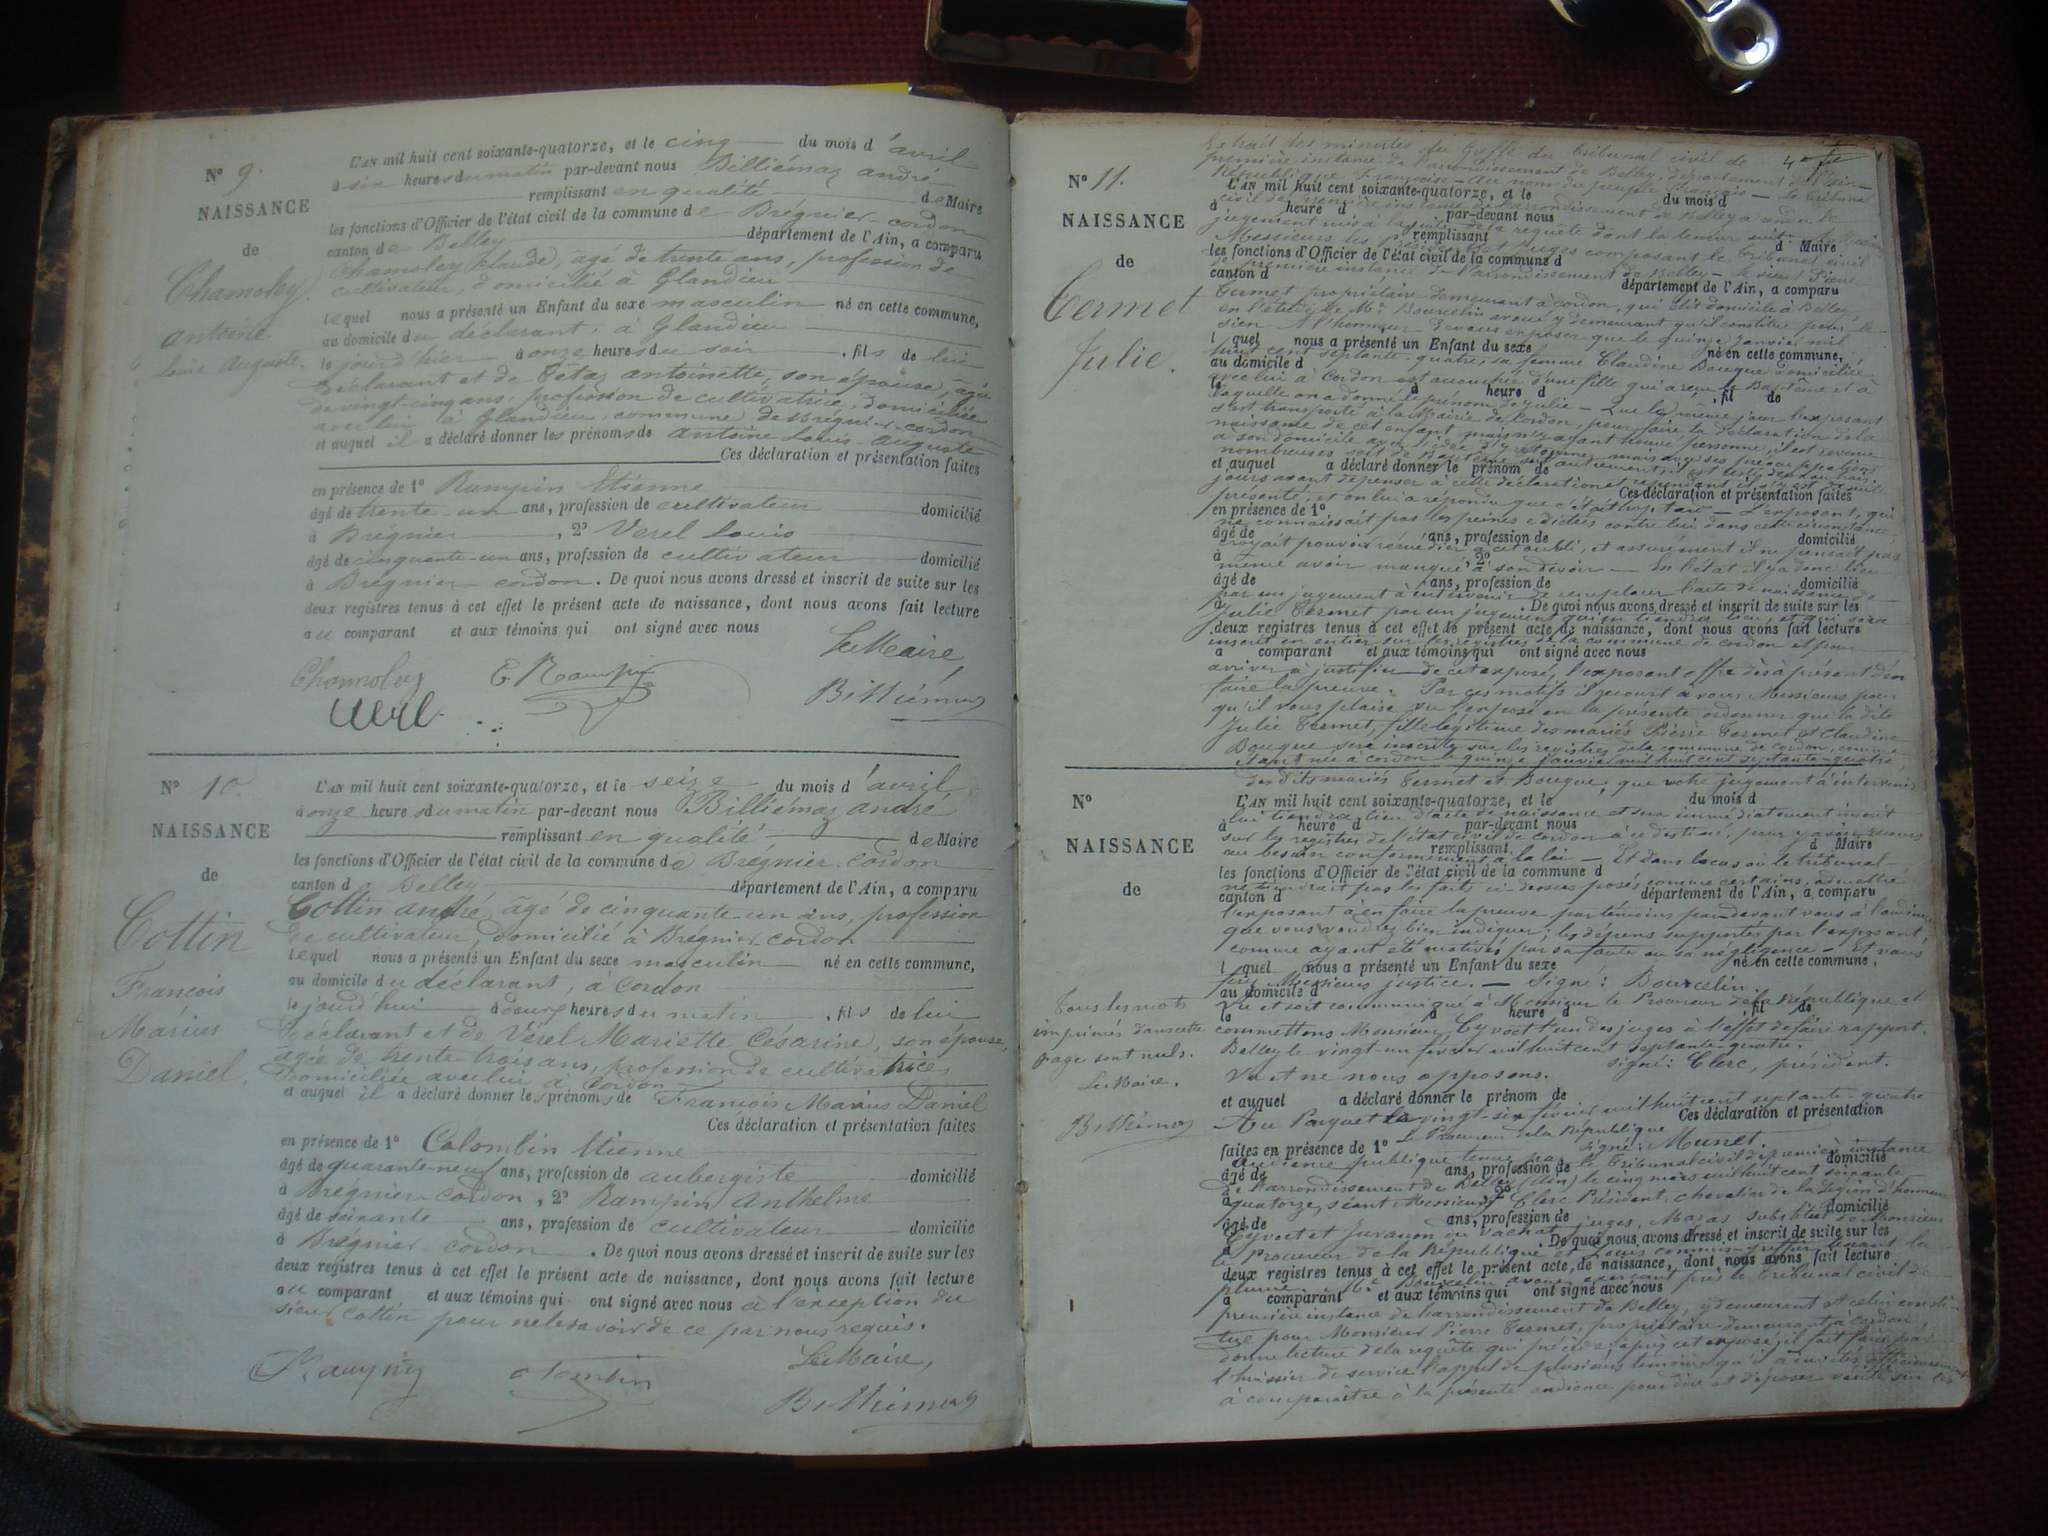 N° 9.
NAISSANCE
de
Chamoley
Antoine
Louis Auguste.
L'AN mil huit cent soixante-quatorze, et le cinq du mois d'avril
à six heures du matin par-devant nous Billiémaz andré
remplissant en qualité de Maire
les fonctions d'Officier de l'état civil de la commune de Brégnier-cordon
canton de Belley département de l'Ain, a comparu
Chamoley Claude, âgé de trente ans, profession de
cultivateur, domicilié à Glandieu
lequel nous a présenté un Enfant du sexe masculin né en cette commune,
au domicile du déclarant, à Glandieu
le jourd'hier à onze heures du soir, fils de lui
déclarant et de Tétaz antoinette, son épouse, âgée
de vingt-cinq ans, profession de cultivatrice, domiciliée
avec lui à Glandieu, commune de Brégnier-cordon
et auquel il a déclaré donner les prénoms de antoine Louis auguste
Ces déclaration et présentation faites
en présence de 1° Rampin Etienne
âgé de trente-un ans, profession de cultivateur domicilié
à Brégnier, 2° Verel Louis
âgé de cinquante-un ans, profession de cultivateur domicilié
à Brégnier-cordon. De quoi nous avons dressé et inscrit de suite sur les
deux registres tenus à cet effet le présent acte de naissance, dont nous avons fait lecture
au comparant et aux témoins qui ont signé avec nous
Le Maire,
Chamoley E Rampin Billiémaz
Verel
N° 10.
NAISSANCE
de
Cottin
François
Marius
Daniel.
L'AN mil huit cent soixante-quatorze, et le seize du mois d'avril
à onze heures du matin par-devant nous Billiémaz andré
remplissant en qualité de Maire
les fonctions d'Officier de l'état civil de la commune de Brégnier-cordon
canton d Belley département de l'Ain, a comparu
Cottin andré, âgé de cinquante-un ans, profession
de cultivateur, domicilié à Brégnier-cordon
lequel nous a présenté un Enfant du sexe masculin né en cette commune,
au domicile du déclarant, à Cordon
le jourd'hui à deux heures du matin, fils de lui
déclarant et de Vérel Mariette Césarine, son épouse,
âgée de trente trois ans, profession de cultivatrice
domiciliée avec lui à Cordon
et auquel il a déclaré donner les prénoms de François Marius Daniel
Ces déclaration et présentation faites
en présence de 1° Colombin Etienne
âgé de quarante-neuf ans, profession de aubergiste domicilié
à Brégnier-Cordon, 2° Rampin Anthelme
âgé de soixante ans, profession de cultivateur domicilié
à Brégnier-cordon. De quoi nous avons dressé et inscrit de suite sur les
deux registres tenus à cet effet le présent acte de naissance, dont nous avons fait lecture
au comparant et aux témoins qui ont signé avec nous à l'exception du
sieur Cottin pour ne le savoir de ce par nous requis.
Le Maire,
Billiémaz
N° 11.
NAISSANCE
de
Termet
Julie.
Extrait des minutes du Greffe du tribunal civil de
première instance de l'arrondissement de Belley, département de l'Ain
République Française - Au nom du peuple français - Le tribunal
L'AN mil huit cent soixante-quatorze, et le du mois d
civil de première instance de l'arrondissement de Belley a rendu le
à heure d par-devant nous
jugement mis à la suite de la requête dont la teneur suit
remplissant d Maire
Messieurs les Président et Juges composant le tribunal civil
les fonctions d'Officier de l'état civil de la commune d
de première instance de l'arrondissement de Belley - Le sieur Pierre
canton d département de l'Ain, a comparu
Termet propriétaire demeurant à cordon, qui élit domicile à Belley
en l'étude de Me Bourcelin avoué y demeurant qu'il constitue pour le
sien A l'honneur de vous exposer que le quinze janvier mil
l quel nous a présenté un Enfant du sexe né en cette commune,
huit cent septante-quatre, sa femme Claudine Bouque domiciliée
au domicile d
avec lui à Cordon est accouchée d'une fille qui a reçu le Baptême et à
le à heure d , fil de
laquelle on a donné le prénom de Julie - Que le même jour l'exposant
s'est transporté à la Mairie de Cordon, pour faire la déclaration de la
naissance de cet enfant, mais n'y ayant trouvé personne, il est revenu
à son domicile avec l'idée d'y retourner, mais
et auquel a déclaré donner le prénom de
jours avant de penser à cette déclaration
Ces déclaration et présentation faites
présenté, et on lui a répondu que c'était trop tard - L'exposant, qui
en présence de 1°
ne connaissait pas les peines édictées contre lui dans cette circonstance,
âgé de ans, profession de domicilié
croyait pouvoir remédier à cet oubli, et assurément il ne pensait pas
à 2°
même avoir manqué à son devoir - En l'état il y a donc lieu
âgé de ans, profession de domicilié
par un jugement à intervenir de remplacer l'acte de naissance de
à . De quoi nous avons dressé et inscrit de suite sur les
Julie Termet par un jugement qui en tiendra lieu, et qui sera
deux registres tenus à cet effet le présent acte de naissance, dont nous avons fait lecture
inscrit en entier sur les registres de la commune de cordon et pour
a comparant et aux témoins qui ont signé avec nous
arriver à justifier de cet exposé, l'exposant offre dès à présent d'en
faire la preuve. Par ces motifs il recourt à vous Messieurs pour
qu'il vous plaise vu l'exposé en la présente ordonner que la dite
Julie Termet, fille légitime des mariés Pierre Termet et Claudine
Bouque sera inscrite sur les registres de la commune de cordon, comme
étant née à cordon le quinze janvier mil huit cent septante-quatre,
des dits mariés Termet et Bouque, que votre jugement à intervenir
N°
NAISSANCE
de
L'AN mil huit cent soixante-quatorze, et le du mois d
lui tiendra lieu d'acte de naissance et sera immédiatement inscrit
à heure d par-devant nous
sur les registres de l'état civil de cordon à ce destiné, pour y avoir recours
remplissant d Maire
au besoin conformément à la loi - Et dans le cas où le tribunal
les fonctions d'Officier de l'état civil de la commune d
ne tiendrait pas les faits ci-dessus posés comme certains, admettre
canton d département de l'Ain, a comparu
l'exposant à en faire la preuve par témoins par devant vous à l'audience
que vous voudrez bien indiquer; les dépens supportés par l'exposant
comme ayant été motivés par sa faute ou sa négligence - Et vous
l quel nous a présenté un Enfant du sexe né en cette commune,
ferez Messieurs justice. - Signé: Bourcelin.
au domicile d
Vu et soit communiqué à Monsieur le Procureur de la République et
le à heure d , fil de
commettons Monsieur Cyvoct l'un des juges à l'effet de faire rapport.
Belley le vingt-un février mil huit cent septante-quatre.
signé: Clerc, président.
Vu et ne nous opposons.
et auquel a déclaré donner le prénom de
Au Parquet le vingt-six février mil huit cent septante-quatre
Ces déclaration et présentation
Le Procureur de la République
signé: Munet.
faites en présence de 1°
Audience publique tenue par le Tribunal civil de première instance
âgé de ans, profession de domicilié
de l'arrondissement de Belley (Ain) le cinq mars mil huit cent soixante
à 2°
quatorze, séant Messieurs Clerc Président, chevalier de la Légion d'honneur
âgé de ans, profession de domicilié
Cyvoct et Juvanon du Vachat juges, Maras substitut de Monsieur
à . De quoi nous avons dressé et inscrit de suite sur les
le Procureur de la République et Louis commis-greffier tenant la
deux registres tenus à cet effet le présent acte de naissance, dont nous avons fait lecture
plume. Me Bourcelin avoué exerçant près le tribunal civil de
a comparant et aux témoins qui ont signé avec nous
première instance de l'arrondissement de Belley, y demeurant et celui consti-
tué pour Monsieur Pierre Termet, propriétaire demeurant à cordon,
donne lecture de la requête qui précède; après cet exposé, il fait faire par
l'huissier de service l'appel de plusieurs témoins qu'il a invités officieusement
à comparaître à la présente audience pour dire et déposer vérité sur les
Tous les mots
imprimés dans cette
page sont nuls.
Le Maire.
Billiémaz